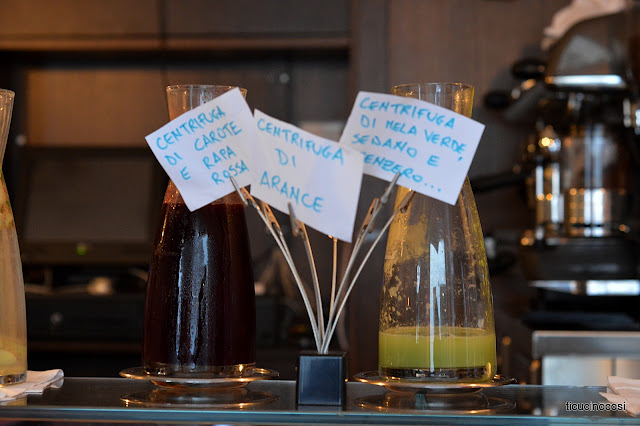 CENTRIFUGA
DI CAROTE
E RAPA
ROSSA
CENTRIFUGA
DI
ARANCE
CENTRIFUGA
DI MELA VERDE,
SEDANO E
ZENZERO...
ficucinocosi